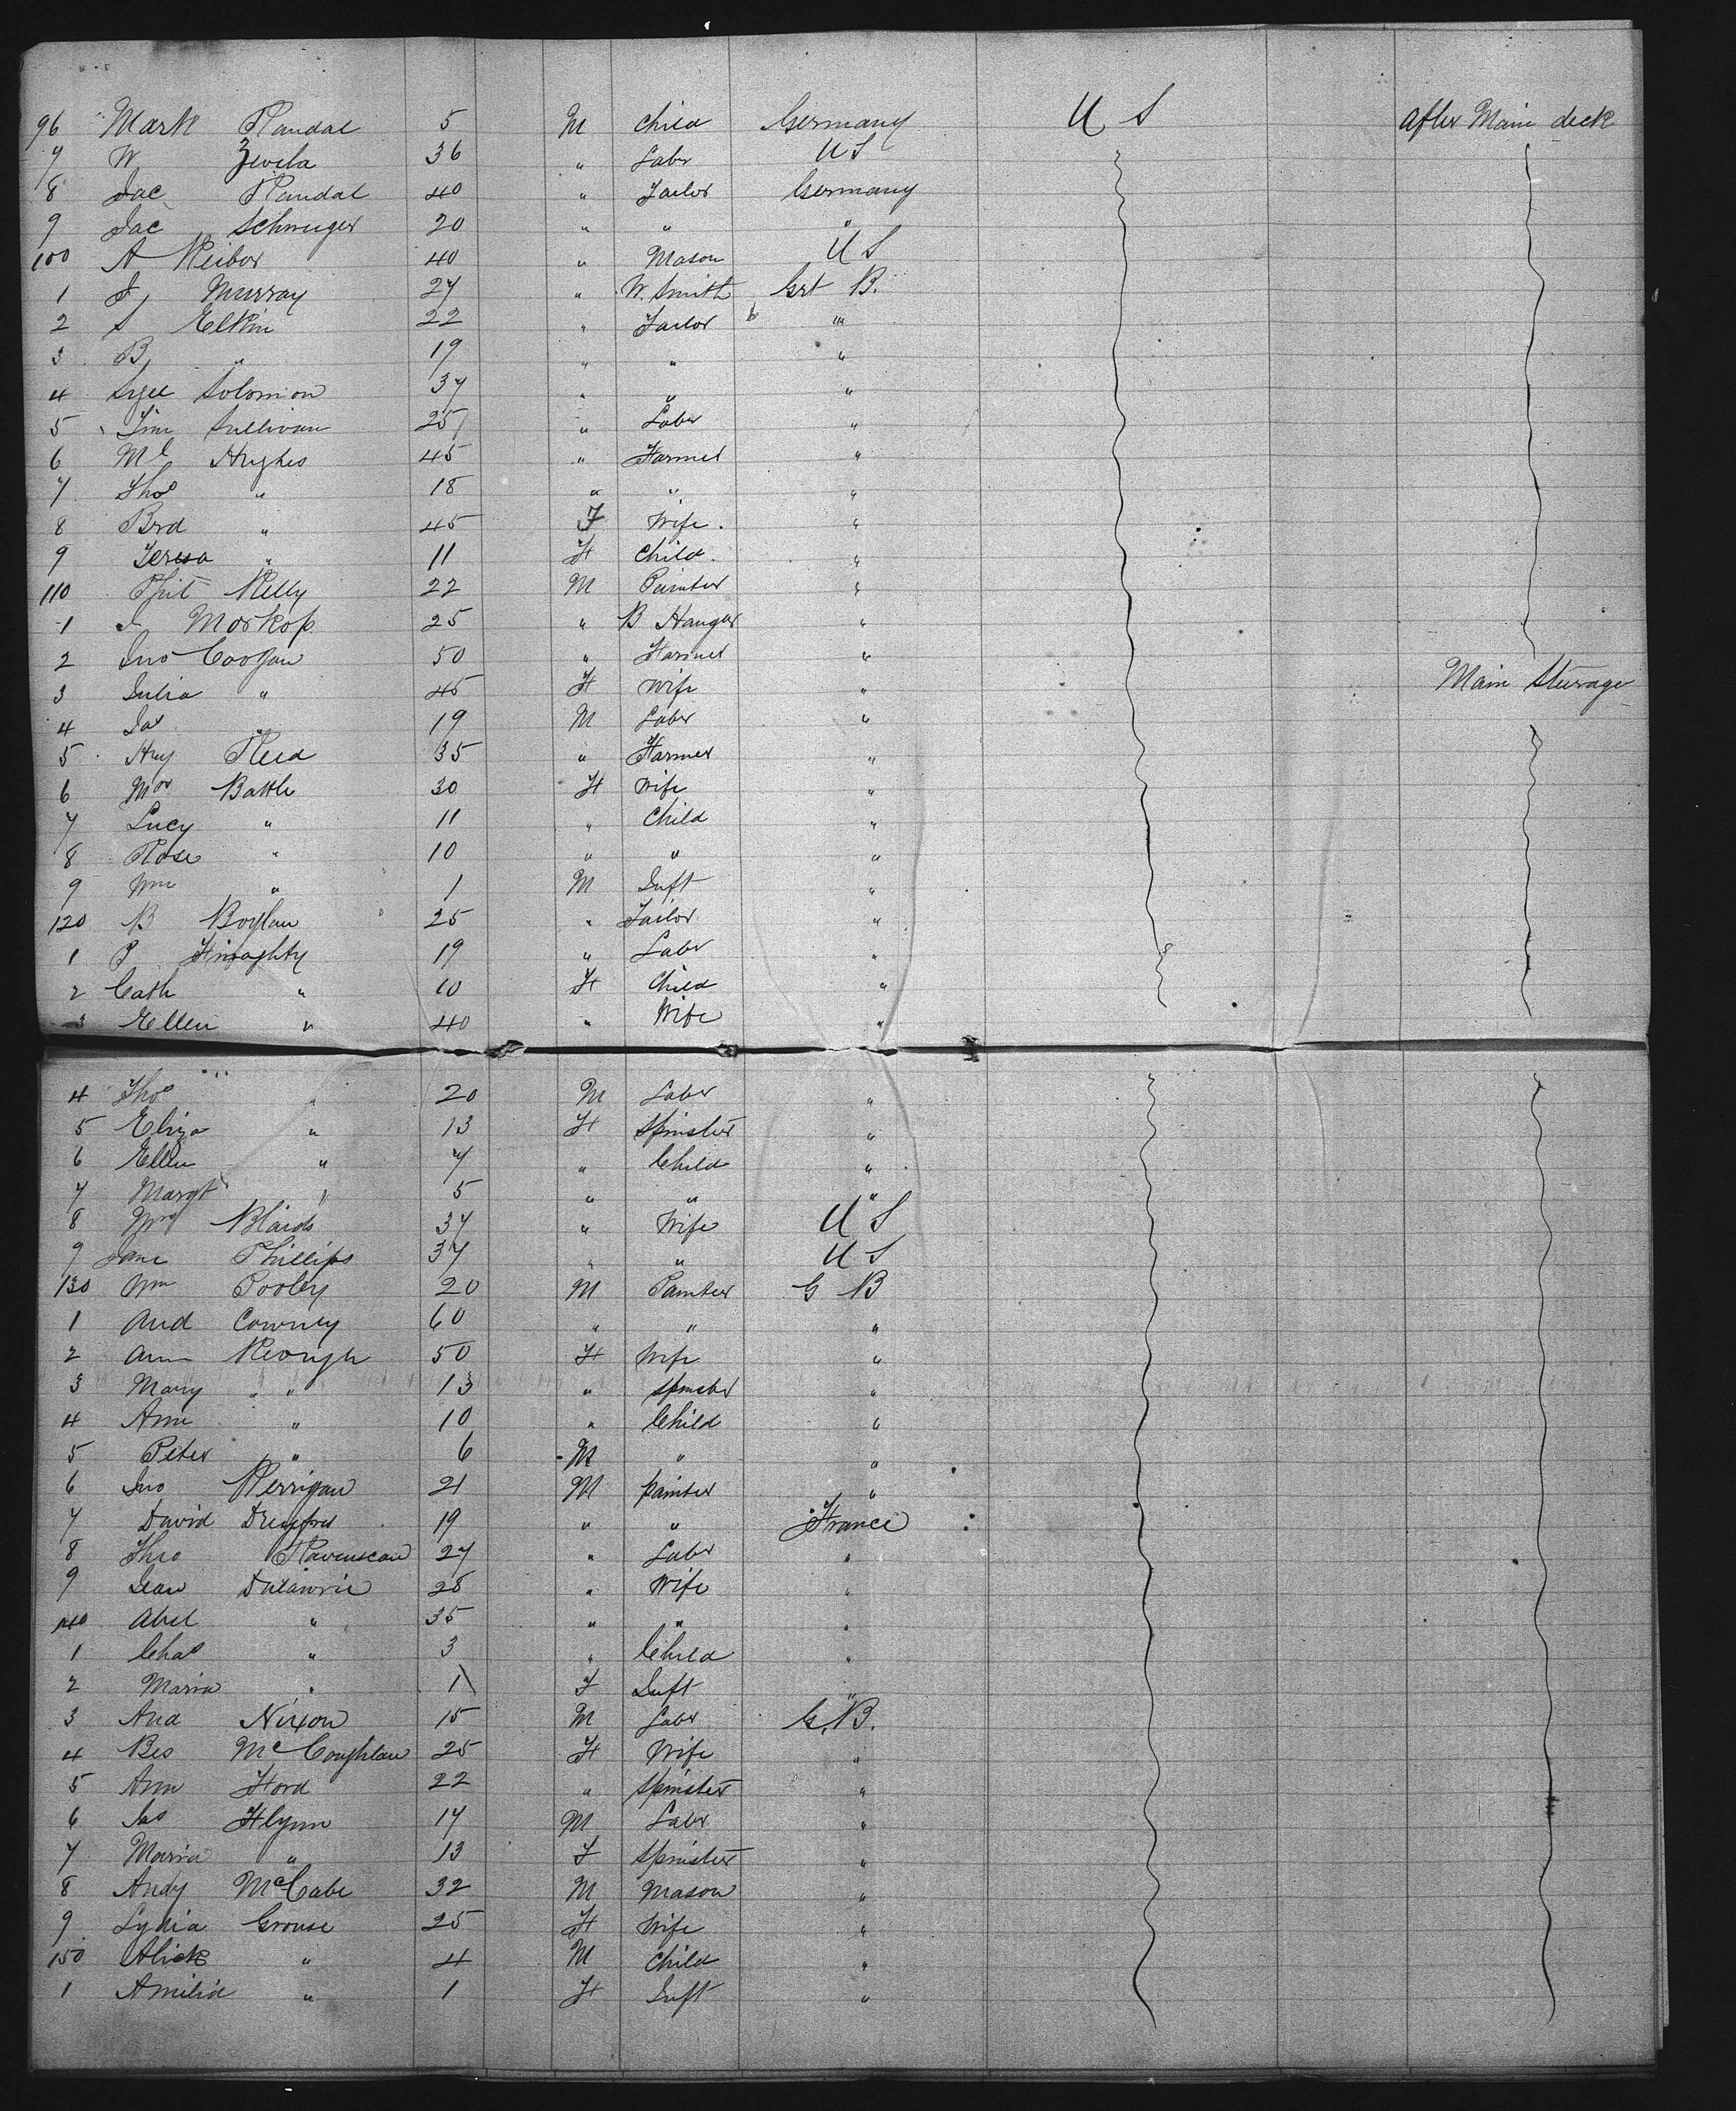 96 Mark Randal 5 M Child Germany U S After Main deck
7 W Zewila 36 " Labr U S
8 Jac Randal 40 " Tailor Germany
9 Jac Schweiger 20 " " "
100 A Reibor 40 " Mason U S
1 J Murray 27 " W. Smith Grt B.
2 S Elkin 22 " Tailor "
3 B " 19 " " "
4 Solomon 37 " " "
5 Tim Sullivan 25 " Labr "
6 Ml Hughes 45 " Farmer "
7 Thos " 18 " " "
8 Brd " 45 F Wife. "
9 Teresa " 11 F Child. "
110 Kelly 22 M Painter "
1 J Morkop 25 " B Hanger "
2 Jno Coogan 50 " Farmer "
3 Julia " 45 F Wife " Main Steerage
4 Jas " 19 M Labr "
5 Hry Reed 35 " Farmer "
6 Mrs Battle 30 F Wife "
7 Lucy " 11 " Child "
8 Rose " 10 " " "
9 Wm " 1 M Inft "
120 B Boylan 25 " Tailor "
1 P Finaghty 19 " Labr "
2 Cath " 10 F Child "
3 Ellen " 40 " Wife "
4 Thos " 20 M Labr "
5 Eliza " 13 F Spinster "
6 Ellen " 7 " Child "
7 Margt " 5 " " "
8 Mrs Blaids 37 " Wife U S
9 Jane Phillips 37 " " U S
130 Wm Pooley 20 M Painter G B
1 And Cowney 60 " " "
2 Ann Keough 50 F Wife "
3 Mary " 13 " Spinster "
4 Ann " 10 " Child "
5 Peter " 6 M " "
6 Jno Kerrigan 21 M Painter "
7 David Dreyfus 19 " " France
8 Theo 27 " Labr "
9 Jean 28 " Wife "
140 Abel " 35 " " "
1 Chas " 3 " Child "
2 Maria " 1 F Inft "
3 And Nixon 15 M Labr G. B.
4 Bes McCoughlan 25 F Wife "
5 Ann Ford 22 " Spinster "
6 Jas Flynn 17 M Labr "
7 Maria " 13 F Spinster "
8 Andy McCabe 32 M Mason "
9 Lydia Grouse 25 F Wife "
150 Alick " 4 M Child "
1 Amilia " 1 F Inft "